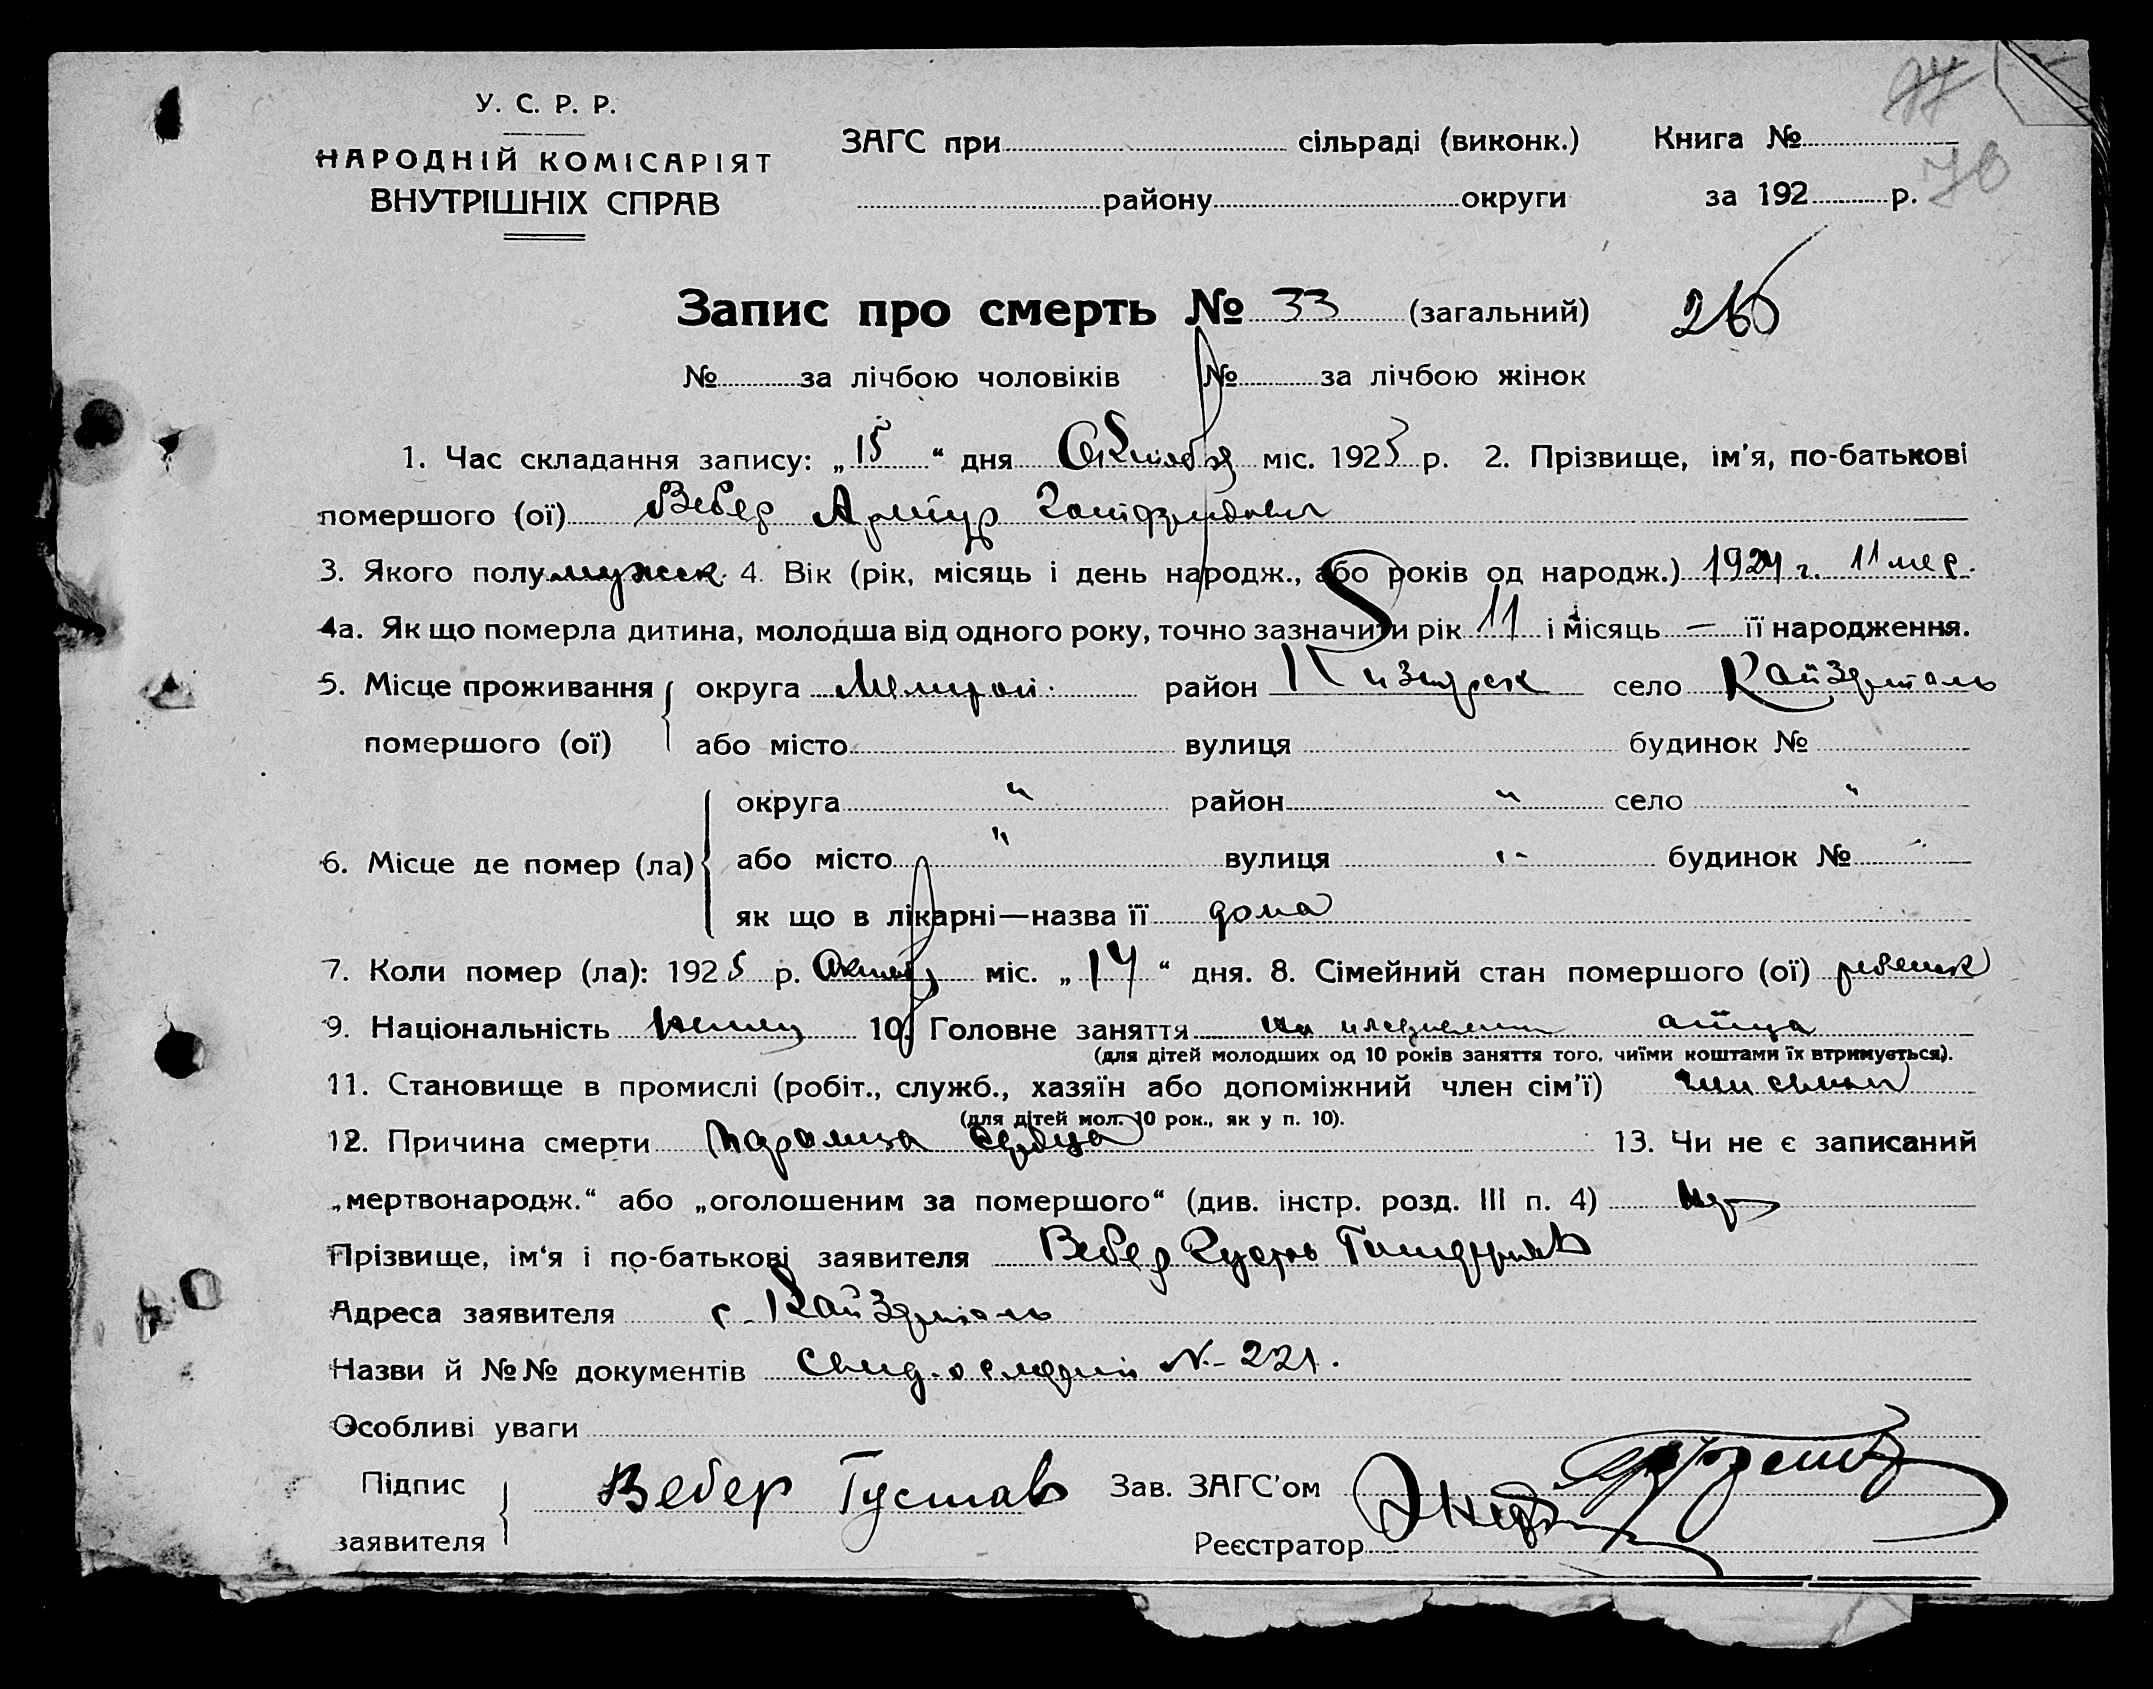 У. С. Р. Р.
НАРОДНІЙ КОМІСАРІЯТ
ВНУТРІШНІХ СПРАВ
ЗАГС при сільраді (виконк.)
району округи
Книга №
за 192 р.
70
Запис про смерть № 33 (загальний)
№ за лічбою чоловіків № за лічбою жінок
1. Час складання запису: „15“ дня Октября міс. 1925 р. 2. Прізвище, ім'я, по-батькові
помершого (ої) Вебер Артур
3. Якого полу мужск. 4. Вік (рік, місяць і день народж., або років од народж.) 1924 г. 11 мес.
4а. Як що померла дитина, молодша від одного року, точно зазначити рік 11 і місяць — її народження.
5. Місце проживання помершого (ої) округа Мелитой. район село Кайзерталь
або місто вулиця будинок №
6. Місце де помер (ла) округа " район " село "
або місто " вулиця " будинок № "
як що в лікарні—назва її дома
7. Коли помер (ла): 1925 р. Октяб міс. „14“ дня. 8. Сімейний стан помершого (ої) ребенок
9. Національність немец 10. Головне заняття на иждивении отца
(для дітей молодших од 10 років заняття того, чиїми коштами їх втримується).
11. Становище в промислі (робіт., служб., хазяїн або допоміжний член сім'ї) член семьи
(для дітей мол. 10 рок., як у п. 10).
12. Причина смерти сердца 13. Чи не є записаний
„мертвонародж.“ або „оголошеним за помершого“ (див. інстр. розд. III п. 4) нет
Прізвище, ім'я і по-батькові заявителя Вебер
Адреса заявителя с. Кайзерталь
Назви й №№ документів № 221.
Особливі уваги
Підпис заявителя Вебер Густав
Зав. ЗАГС'ом
Реєстратор